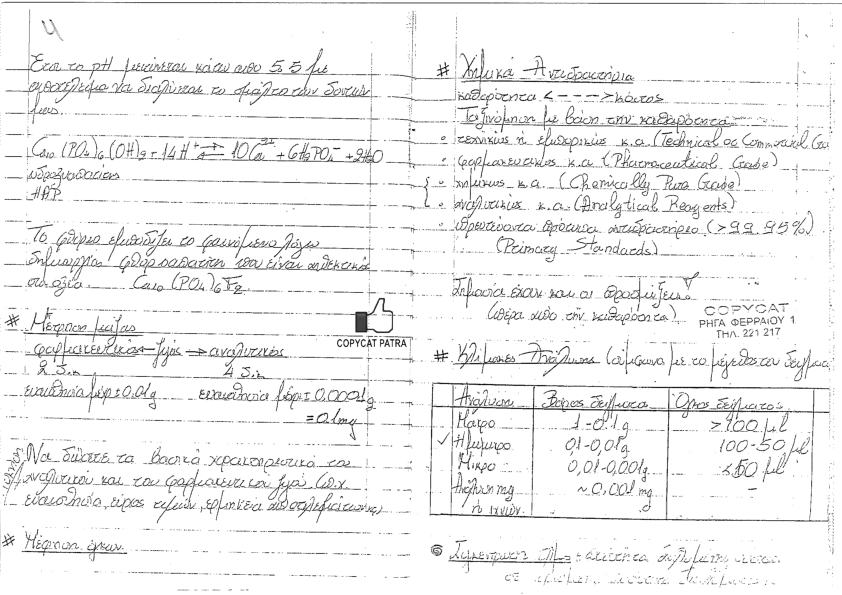 4
Έτσι το pH μειώνεται κάτω από 5.5 με
αποτέλεσμα να διαλύεται το σμάλτο των δοντιών
μας.
Ca10 (PO4)6 (OH)2 + 14H+ ⇄ 10Ca2+ + 6H2PO4- + 2H2O
υδροξυαπατίτης
HAP
Το φθόριο εμποδίζει το φαινόμενο λόγω
δημιουργίας φθοραπατίτη που είναι ανθεκτικός
στα οξέα. Ca10 (PO4)6 F2
# Μέτρηση μάζας
φαρμακευτικός ← ζυγός → αναλυτικός
2 δ.ψ. 4 δ.ψ.
ευαισθησία μέχρι ± 0,01g ευαισθησία μέχρι ± 0,0001g
= 0.1mg
Να δώσετε τα βασικά χαρακτηριστικά του
αναλυτικού και του φαρμακευτικού ζυγού (π.χ.
ευαισθησία, εύρος τιμών, ερμηνεία αποτελεσμάτων)
# Μέτρηση όγκων.
COPYCAT PATRA
# Χημικά Αντιδραστήρια
καθαρότητα <----> κόστος
Ταξινόμηση με βάση την καθαρότητα
• τεχνικώς ή εμπορικώς κ.α. (Technical or Commercial Gra
• φαρμακευτικώς κ.α. (Pharmaceutical Grade)
• χημικώς κ.α. (Chemically Pure Grade)
• αναλυτικώς κ.α. (Analytical Reagents)
• πρωτεύοντα πρότυπα αντιδραστήρια (>99.95%)
(Primary Standards)
Σημασία έχουν και οι προσμίξεις
(πέρα από την καθαρότητα)
COPYCAT
ΡΗΓΑ ΦΕΡΡΑΙΟΥ 1
ΤΗΛ. 221 217
# Κλίμακες Ανάλυσης (σύμφωνα με το μέγεθος του δείγμα
Ανάλυση Βάρος δείγματος Όγκος δείγματος
Μακρο 1-0.1g >100 μl
✓ Ημιμικρο 0,1-0,01g 100-50 μl
Μικρο 0,01-0,001g <50 μl
Ανάλυση mg ~0,001 mg -
ή ιχνών.
Συγκέντρωση